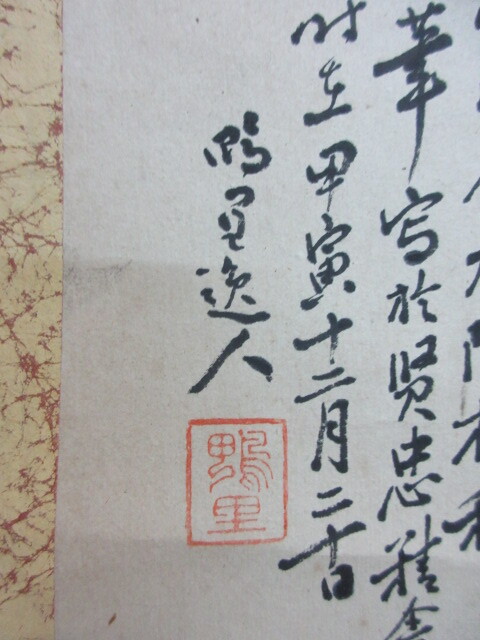 筆写於賢忠精舍
時在甲寅十二月二十日
鴨里逸人
鴨里